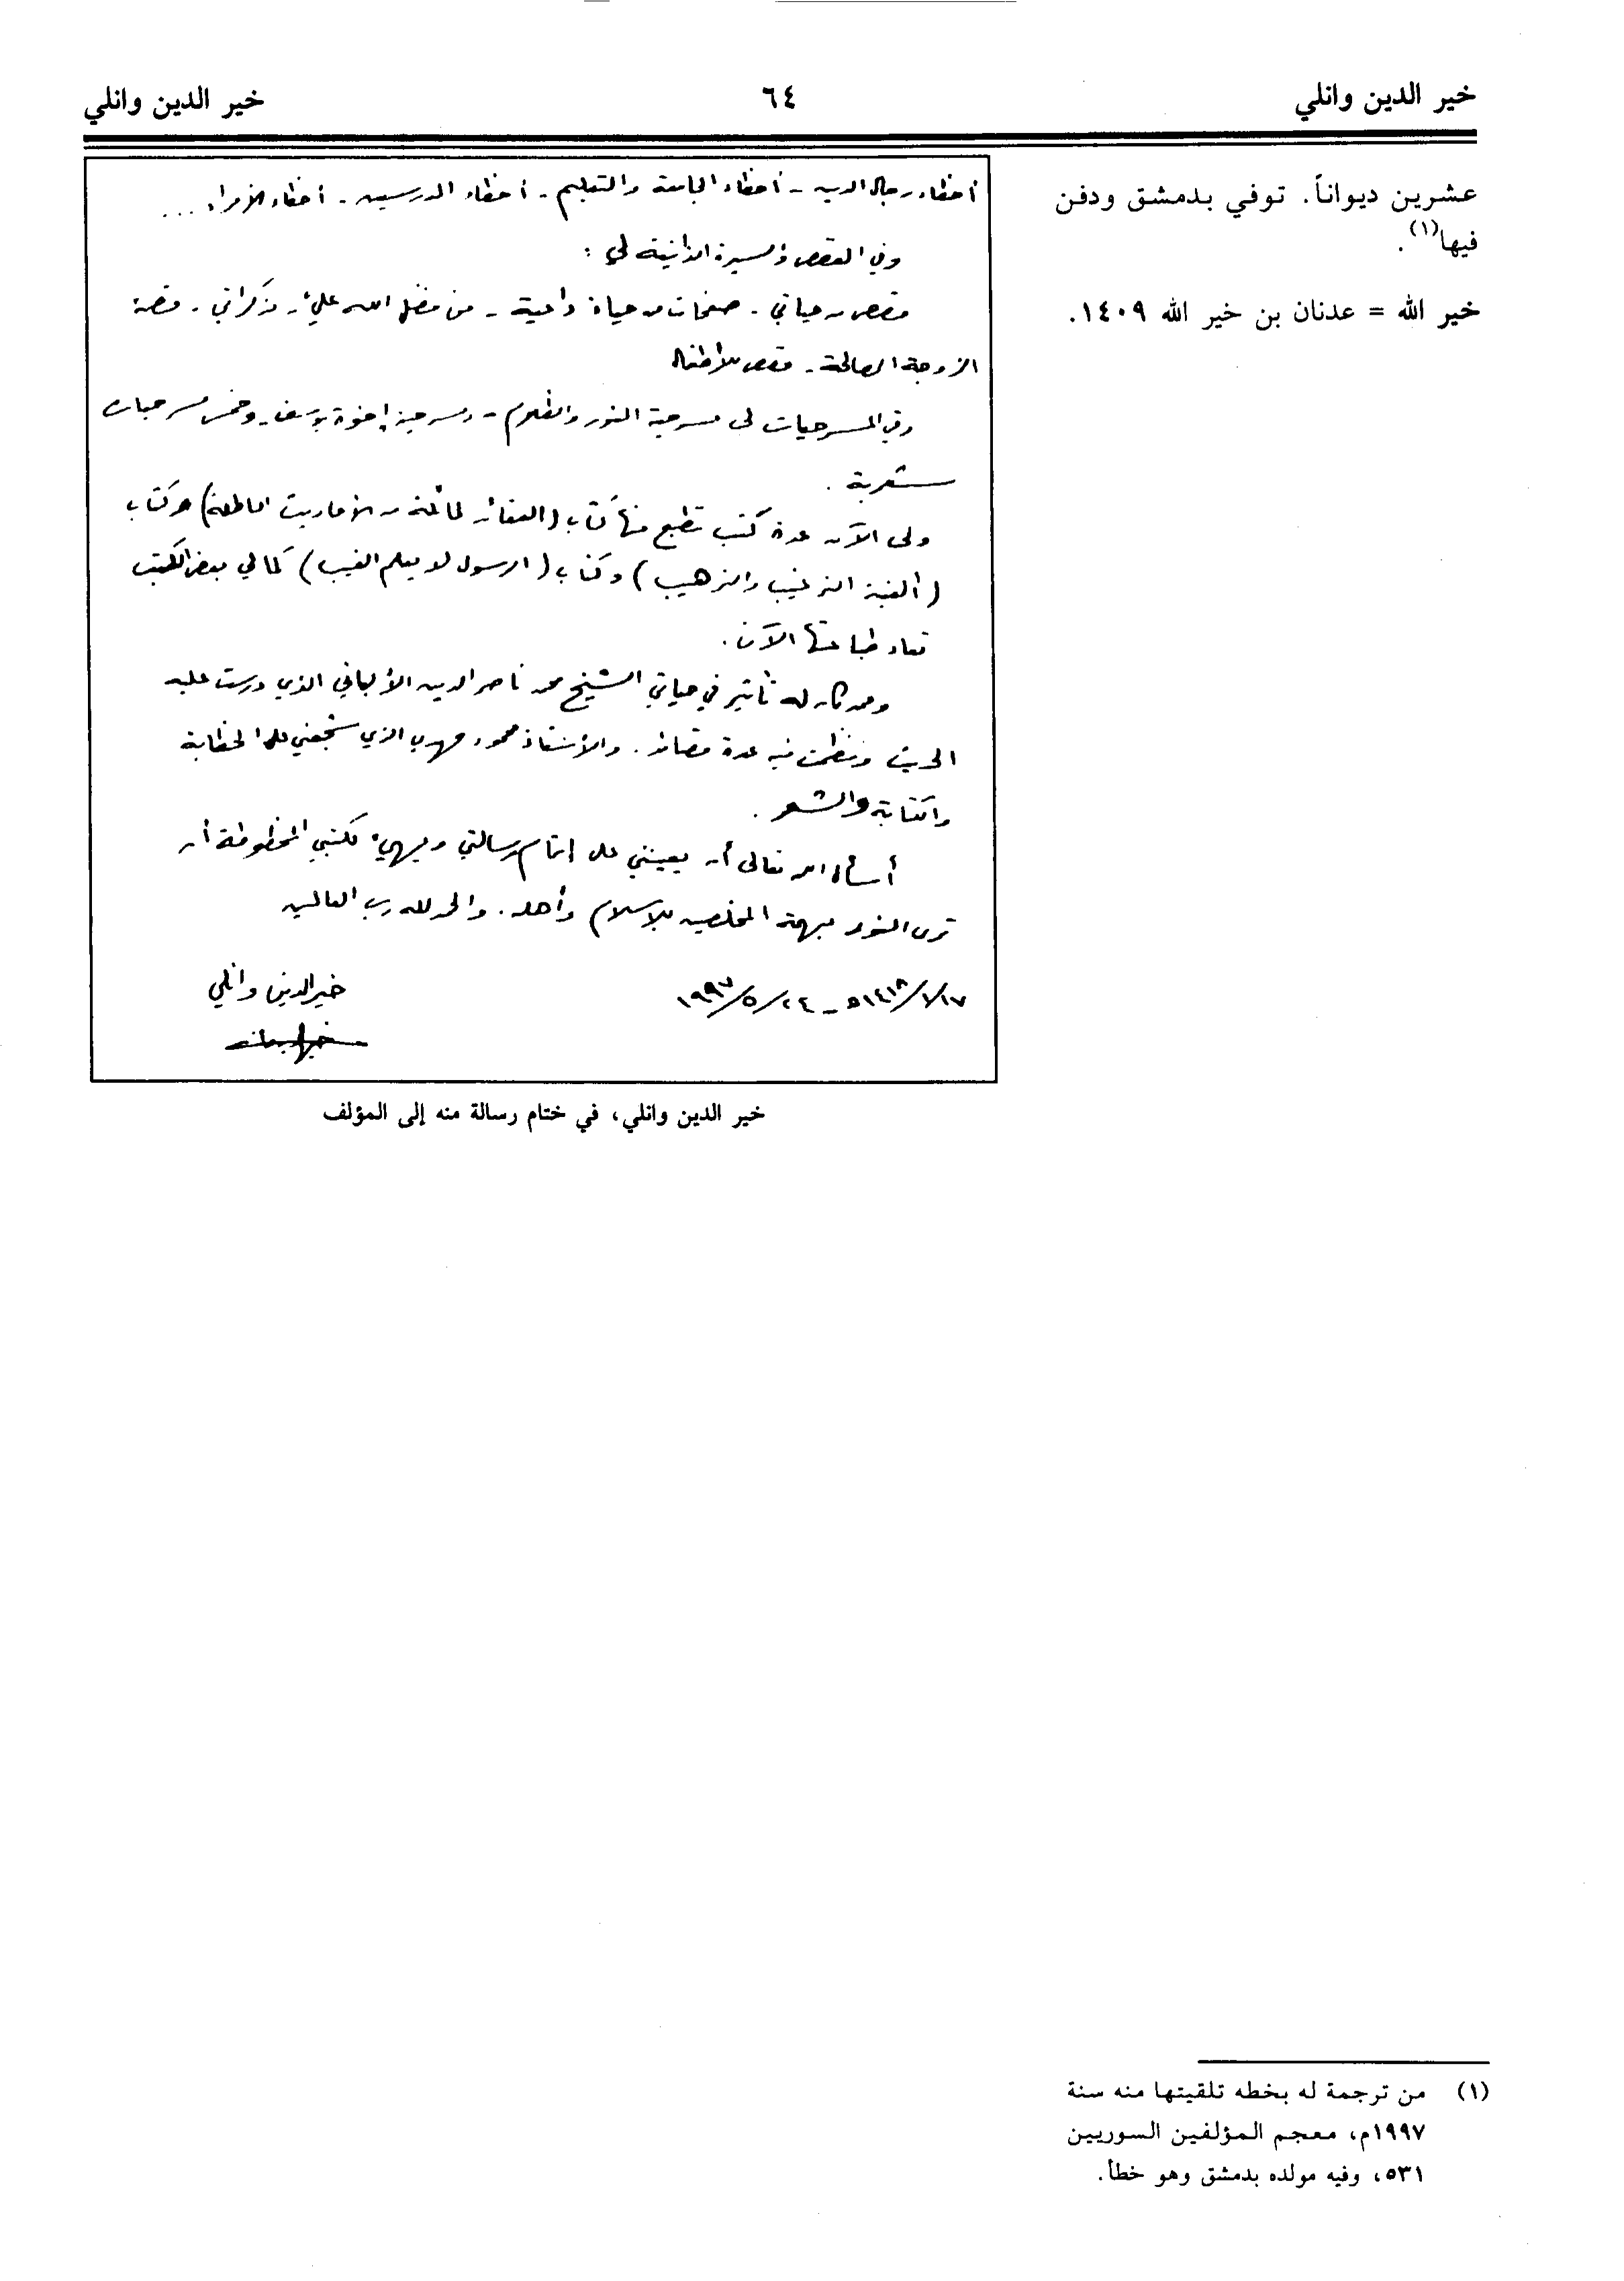 خير الدين وانلي
٦٤
خير الدين وانلي
عشرين ديواناً. توفي بدمشق ودفن
فيها(١).
خير الله = عدنان بن خير الله ١٤٠٩.
أخطاء رجال الدين - أخطاء الجامعة والتعليم - أخطاء المدرسين - أخطاء الأمراء ...
وفي القصص والسيرة الذاتية لي :
قصص من حياتي - صفحات من حياة داعية - من فضل الله عليّ - ذكراتي - قصة
الزوجة الصالحة - قصص للأطفال
وفي المسرحيات لي مسرحية النور والظلام - ومسرحية إخوة يوسف - وخمس مسرحيات
شعرية .
ولي الآن عدة كتب تطبع منها كتاب (العقائد الباطلة من الأحاديث الباطلة) وكتاب
(ألفية الترغيب والترهيب) وكتاب (الرسول لا يعلم الغيب) كما لي بعض الكتب
تعاد طباعتها الآن .
وممن كان له تأثير في حياتي الشيخ محمد ناصر الدين الألباني الذي درست عليه
الحديث ونظمت فيه عدة قصائد . والأستاذ محمود مهدي الذي شجعني على الخطابة
والكتابة والشعر .
أسأل الله تعالى أن يعينني على إتمام رسالتي ويهيء لكتبي المخطوطة أن
ترى النور بهمة المخلصين للإسلام وأهله . والحمد لله رب العالمين
١٧/١/١٤١٨ه - ٢٤/٥/١٩٩٧
خير الدين وانلي
خير الدين وانلي، في ختام رسالة منه إلى المؤلف
(١) من ترجمة له بخطه تلقيتها منه سنة
١٩٩٧م، معجم المؤلفين السوريين
٥٣١، وفيه مولده بدمشق وهو خطأ.